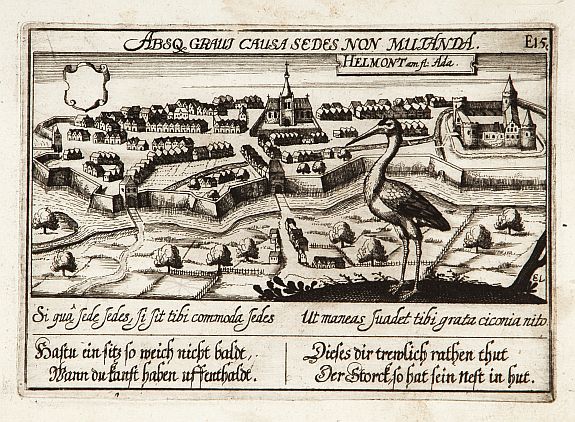 ABSQ. GRAUI CAUSA SEDES NON MUTANDA. E15.
HELMONT am fl: Ada.
EL
Si quâ sede sedes, si sit tibi commoda sedes Ut maneas suadet tibi grata ciconia nito
Hastu ein sitz so weich nicht baldt,
Wann du kanst haben uffenthaldt.
Dieses dir trewlich rathen thut
Der Storck, so hat sein nest in hut.